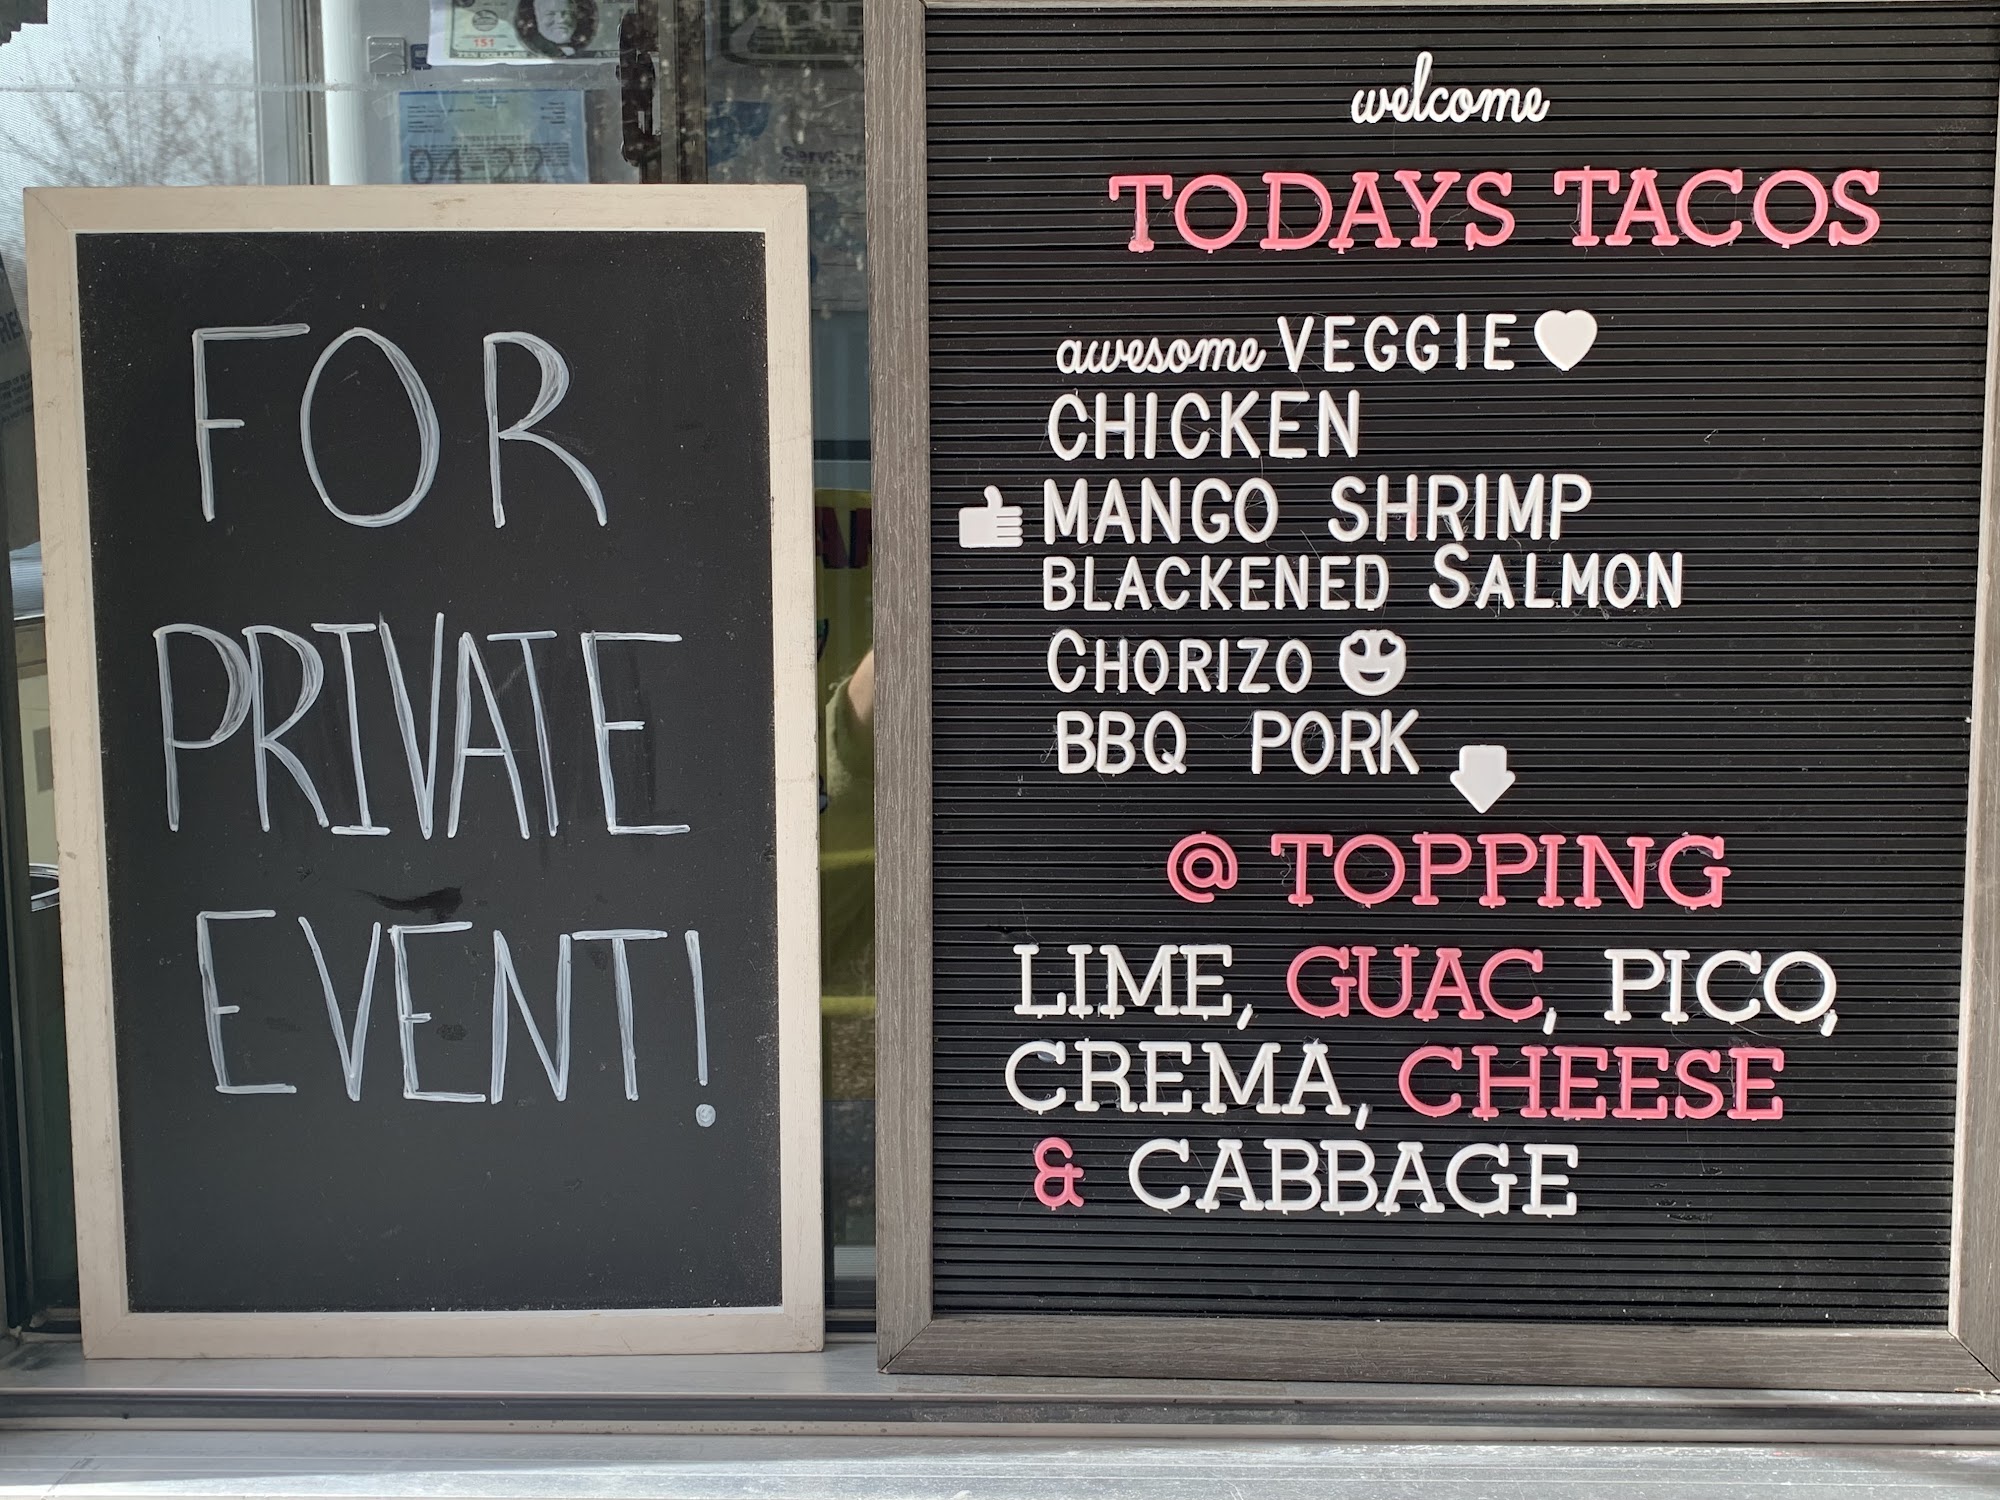 151
TEN DOLLARS
04-22
FOR
PRIVATE
EVENT!
welcome
TODAYS TACOS
awesome VEGGIE
CHICKEN
MANGO SHRIMP
BLACKENED SALMON
CHORIZO
BBQ PORK
@ TOPPING
LIME, GUAC, PICO,
CREMA, CHEESE
& CABBAGE